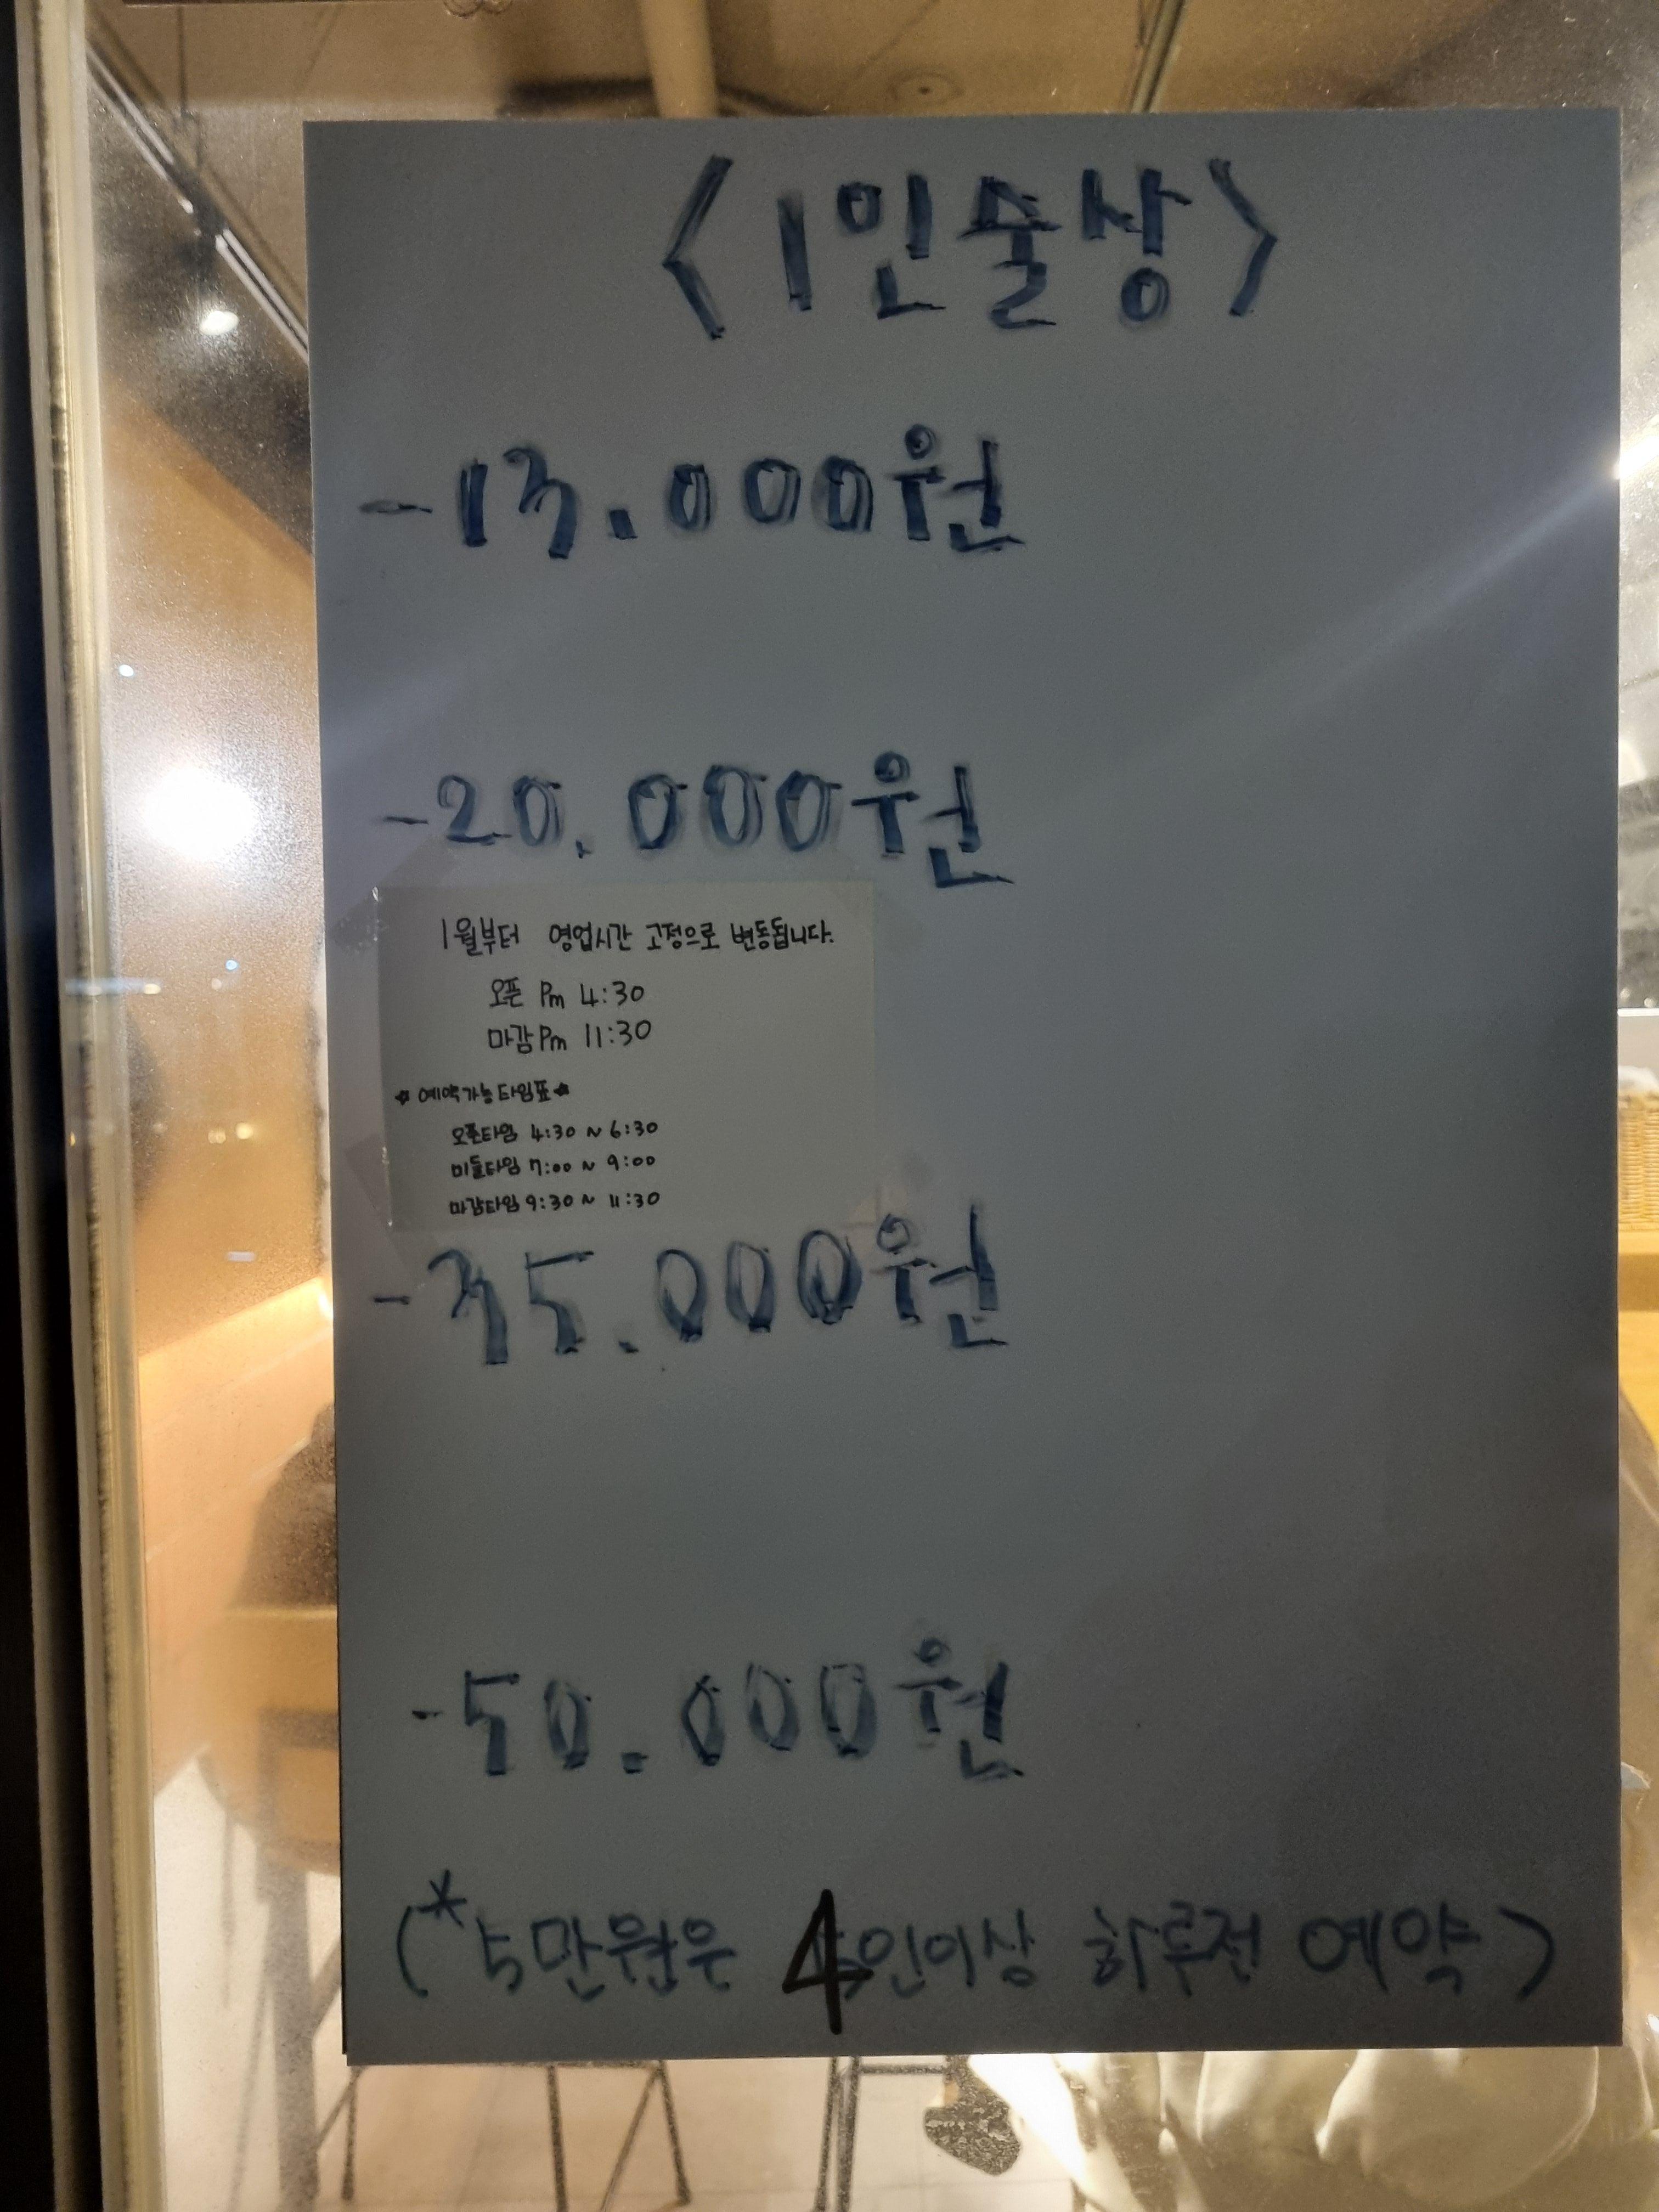 <1인술상>
-13.000원
-20.000원
1월부터 영업시간 고정으로 변동됩니다.
오픈 Pm 4:30
마감 Pm 11:30
☆예약가능타임표☆
오픈타임 4:30 ~ 6:30
미들타임 7:00 ~ 9:00
마감타임 9:30 ~ 11:30
-35.000원
-50.000원
(*5만원은 4인이상 하루전 예약)